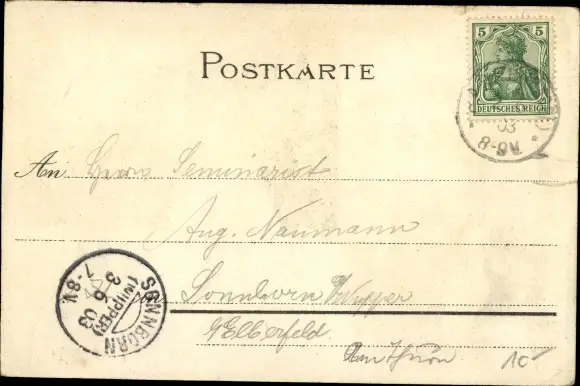 5 5
DEUTSCHES REICH
POSTKARTE
03
8-9V.
An Herrn Seminarist
Aug. Naumann
Sonnborn Wupper
Elberfeld
SONNBORN
(WUPPER)
3 6 03
7-8V.
10